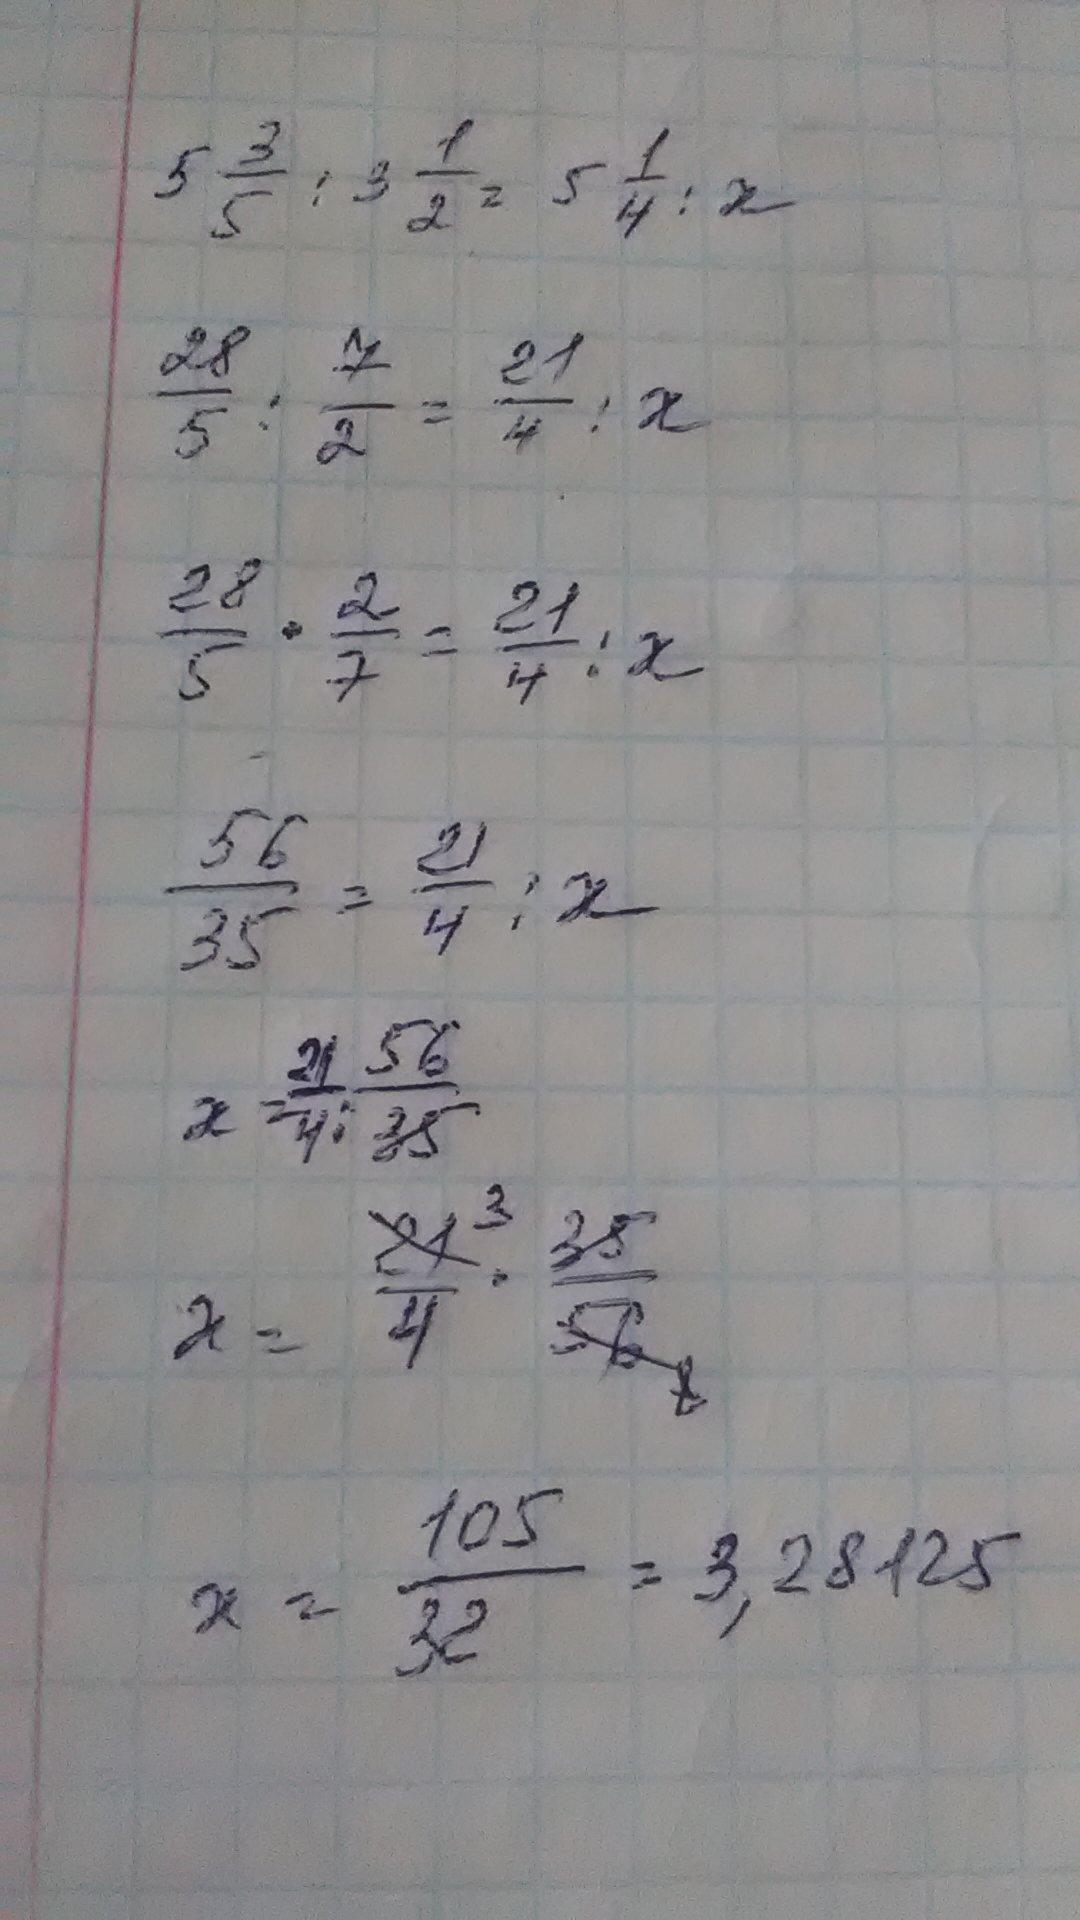 5 3/5 : 3 1/2 = 5 1/4 : x
28/5 : 7/2 = 21/4 : x
28/5 · 2/7 = 21/4 : x
56/35 = 21/4 : x
x = 21/4 : 56/35
x = 21 3/4 · 35/56 8
x = 105/32 = 3,28125